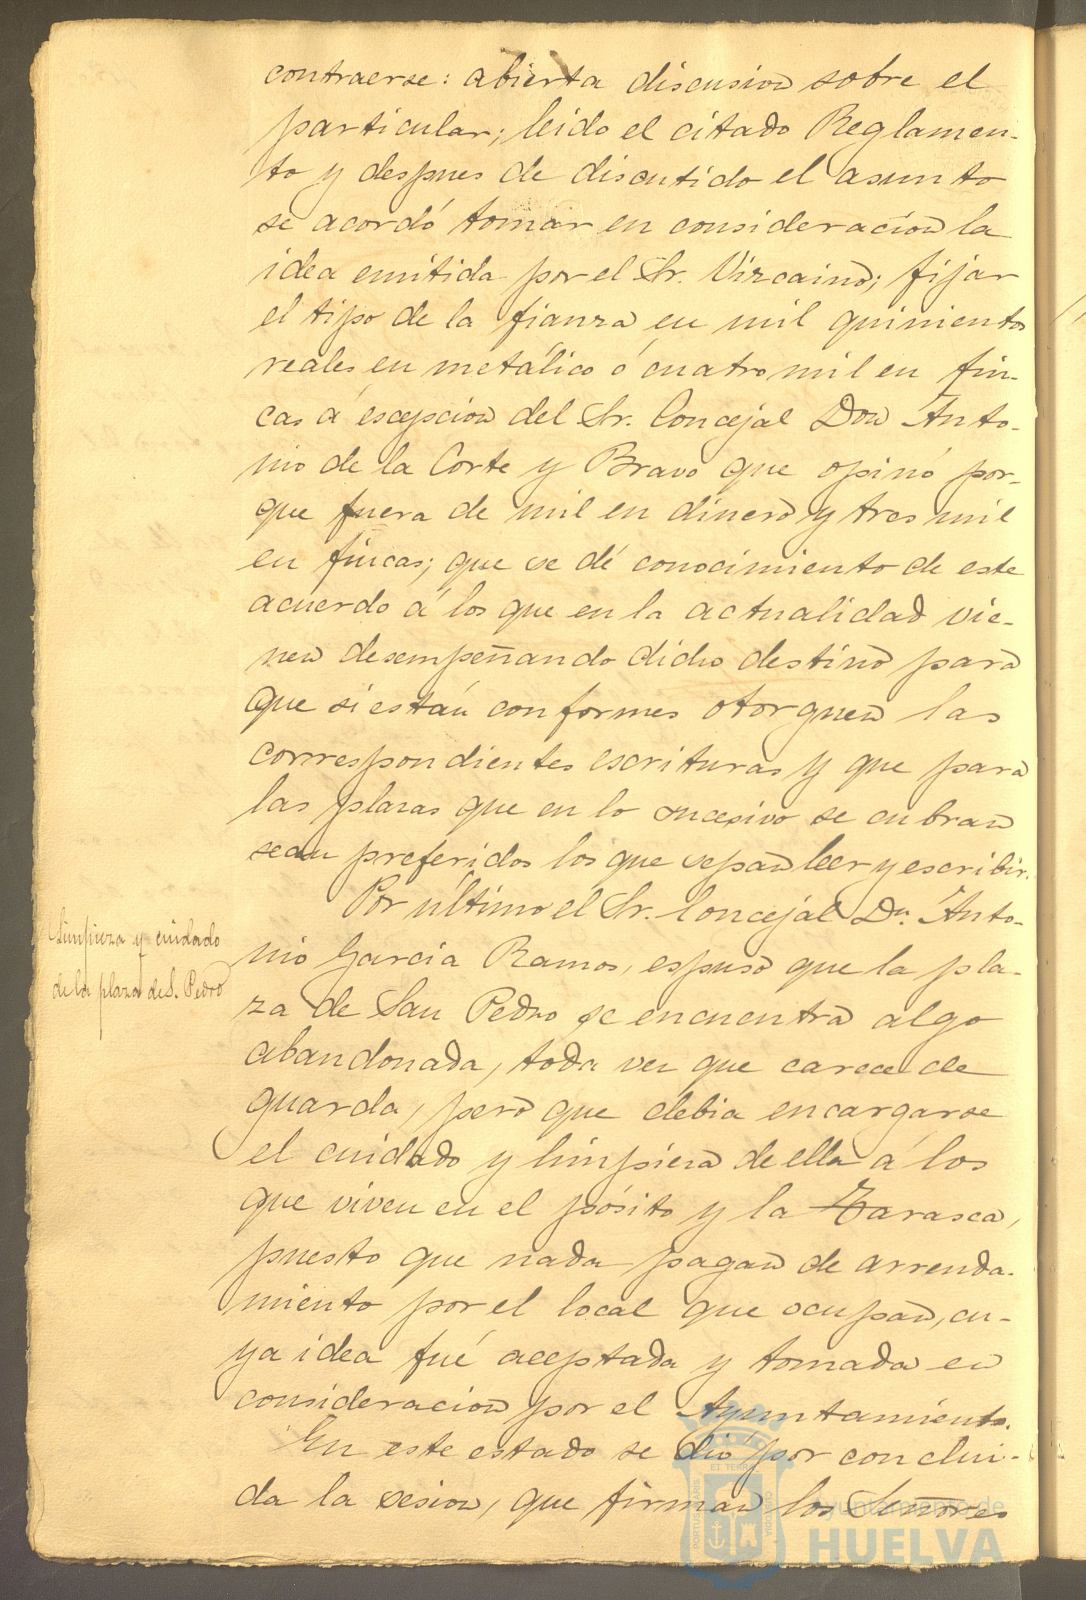 contraerse: abierta discusion sobre el
particular; leido el citado Reglamen-
to y despues de discutido el asunto
se acordó tomar en consideracion la
idea emitida por el Sr. Vizcaino; fijar
el tipo de la fianza en mil quinientos
reales en metálico ó cuatro mil en fin-
cas á escepcion del Sr. Concejal Don Anto-
nio de la Corte y Bravo que opinó por-
que fuera de mil en dinero y tres mil
en fincas; que se dé conocimiento de este
acuerdo á los que en la actualidad vie-
nen desempeñando dicho destino para
que si están conformes otorguen las
correspondientes escrituras y que para
las plazas que en lo sucesivo se cubran
sean preferidos los que sepan leer y escribir.
Por último el Sr. Concejal Dn. Anto-
nio García Ramos, espuso que la pla-
za de San Pedro se encuentra algo
abandonada, toda vez que carece de
guarda, pero que debia encargarse
el cuidado y limpieza de ella á los
que viven en el pósito y la Tarasca,
puesto que nada pagan de arrenda-
miento por el local que ocupan, cu-
ya idea fué aceptada y tomada en
consideracion por el Ayuntamiento.
En este estado se dió por conclui-
da la sesion, que firman los Señores
Limpieza y cuidado
de la plaza de S. Pedro
Ayuntamiento de
HUELVA